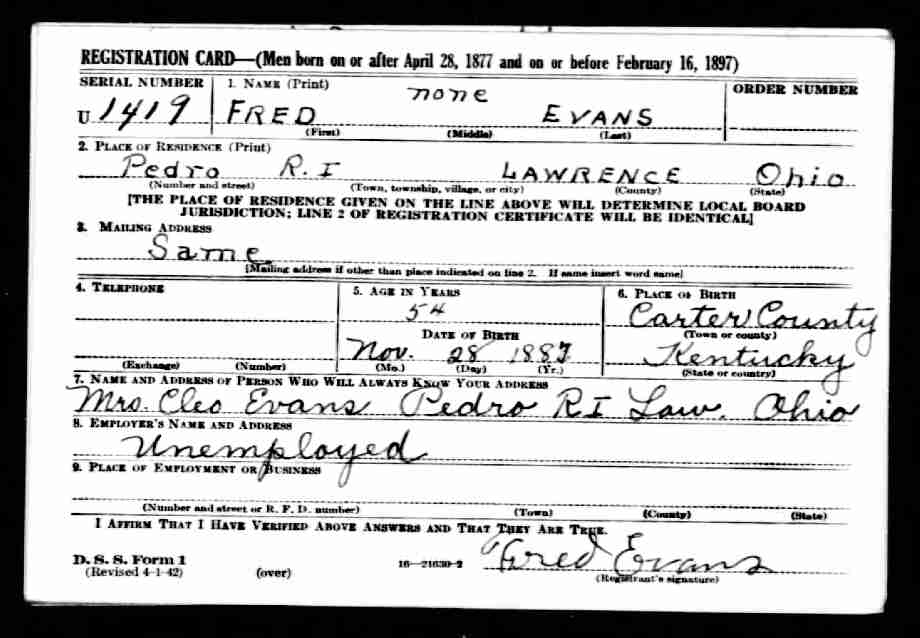 REGISTRATION CARD—(Men born on or after April 28, 1877 and on or before February 16, 1897)
SERIAL NUMBER 1. NAME (Print) ORDER NUMBER
U 1419 FRED none EVANS
(First) (Middle) (Last)
2. PLACE OF RESIDENCE (Print)
Pedro R.I LAWRENCE Ohio
(Number and street) (Town, township, village, or city) (County) (State)
[THE PLACE OF RESIDENCE GIVEN ON THE LINE ABOVE WILL DETERMINE LOCAL BOARD
JURISDICTION; LINE 2 OF REGISTRATION CERTIFICATE WILL BE IDENTICAL]
3. MAILING ADDRESS
Same
[Mailing address if other than place indicated on line 2. If same insert word same]
4. TELEPHONE 5. AGE IN YEARS 6. PLACE OF BIRTH
54 Carter County
DATE OF BIRTH (Town or county)
Nov. 28 1887 Kentucky
(Exchange) (Number) (Mo.) (Day) (Yr.) (State or country)
7. NAME AND ADDRESS OF PERSON WHO WILL ALWAYS KNOW YOUR ADDRESS
Mrs. Cleo Evans Pedro RI Law. Ohio
8. EMPLOYER'S NAME AND ADDRESS
Unemployed
9. PLACE OF EMPLOYMENT OR BUSINESS
(Number and street or R. F. D. number) (Town) (County) (State)
I AFFIRM THAT I HAVE VERIFIED ABOVE ANSWERS AND THAT THEY ARE TRUE.
D. S. S. Form 1
(Revised 4-1-42) (over) 16—21630-2 Fred Evans
(Registrant's signature)